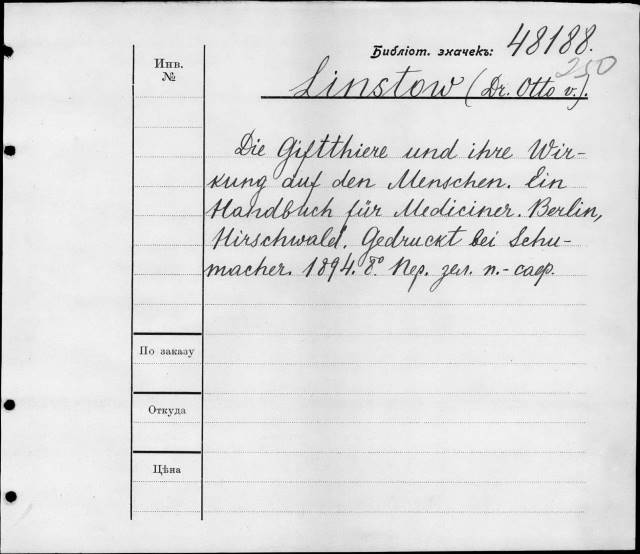 Библіот. значекъ: 48188.
250
Инв.
№
Linstow (Dr. Otto v.).
Die Giftthiere und ihre Wir-
kung auf den Menschen. Ein
Handbuch für Mediciner. Berlin,
Hirschwald. Gedruckt bei Schu-
macher. 1894. 8° Пер. зел. п.-саф.
По заказу
Откуда
Цѣна